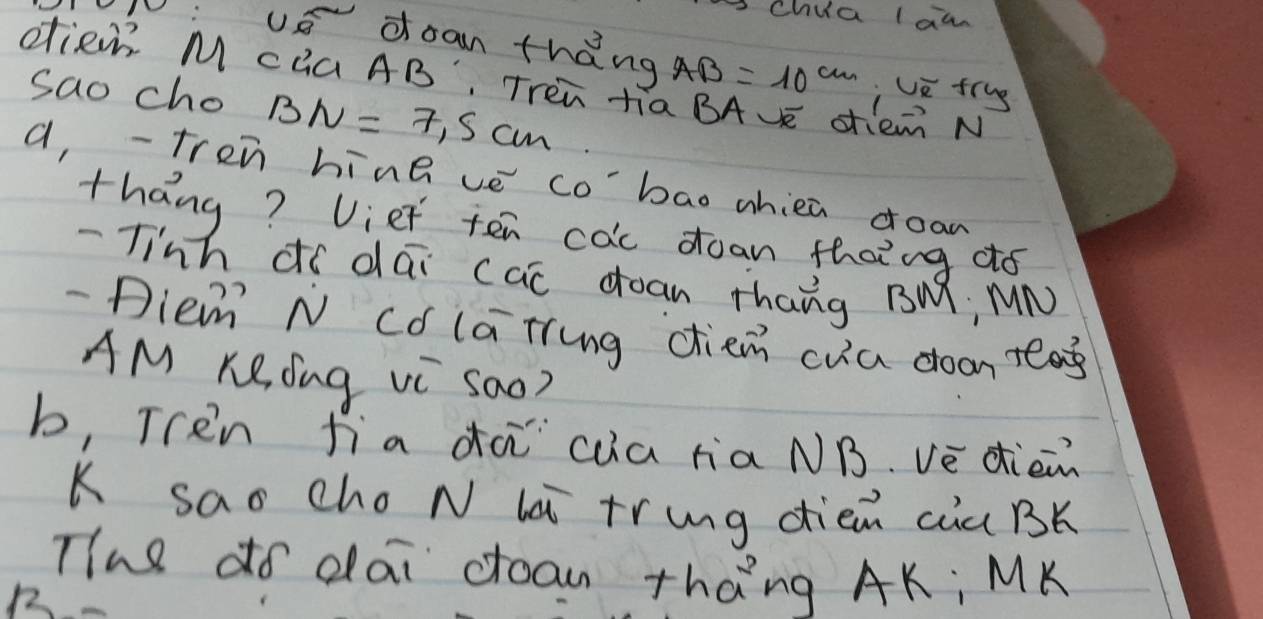 chưa làm
Vẽ đoạn thẳng AB = 10 cm. Vẽ trung
điểm M của AB. Trên tia BA vẽ điểm N
sao cho BN = 7,5 cm.
a, - Trên hình vẽ có bao nhiêu đoạn
thẳng? Viết tên các đoạn thẳng đó
- Tính độ dài các đoạn thẳng BM; MN
- Điểm N có là trung điểm của đoạn thẳng
AM không vì sao?
b, Trên tia đối của tia NB. Vẽ điểm
K sao cho N là trung điểm của BK
Tính độ dài đoạn thẳng AK; MK